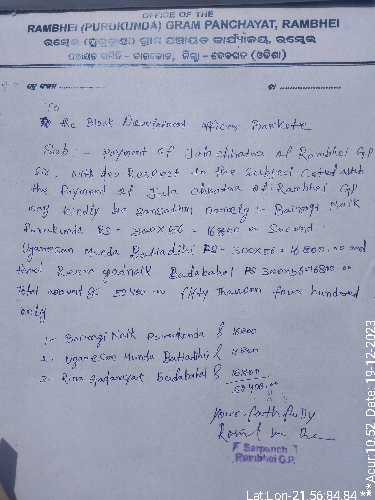 OFFICE OF THE
RAMBHEI (PURUKUNDA) GRAM PANCHAYAT, RAMBHEI
ରମ୍ଭେଇ (ପୁରୁକୁଣ୍ଡା) ଗ୍ରାମ ପଞ୍ଚାୟତ କାର୍ଯ୍ୟାଳୟ, ରମ୍ଭେଇ
ପଞ୍ଚାୟତ ସମିତି - ବାରକୋଟ, ଜିଲ୍ଲା - ଦେବଗଡ଼ (ଓଡ଼ିଶା)
To
The Block Development officer Barkote
Sub :- payment of Jalachhatra of Rambhei GP
Sir, with due Respect to the Subject Cited
the Payment of Jala chhatra of Rambhei GP
may kindly be namely :- Bairagi Naik
Purukunda RS - 300x56 - 16800.00 Second
Ugaresan Munda Batiadihi RS - 300x56 - 16800.00 and
Badabahal RS 300x56-16800.00
Total amount of 50400.00 fifty Thousan four hundred
only
1 :- Bairagi Naik Purukunda 16800
2. Ugaresan Munda Batiadihi 16800
3. Badabahal 16800
50,400.00
Yours faithfully
Sarpanch
Rambhei G.P.
Lat:Lon-21.56:84.84 ***Acur:10.52, Date, 19-12-2023